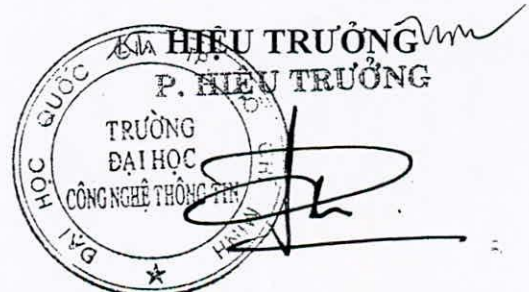 HIỆU TRƯỞNG
P. HIỆU TRƯỞNG
ĐẠI HỌC QUỐC GIA TP HỒ CHÍ MINH
TRƯỜNG
ĐẠI HỌC
CÔNG NGHỆ THÔNG TIN